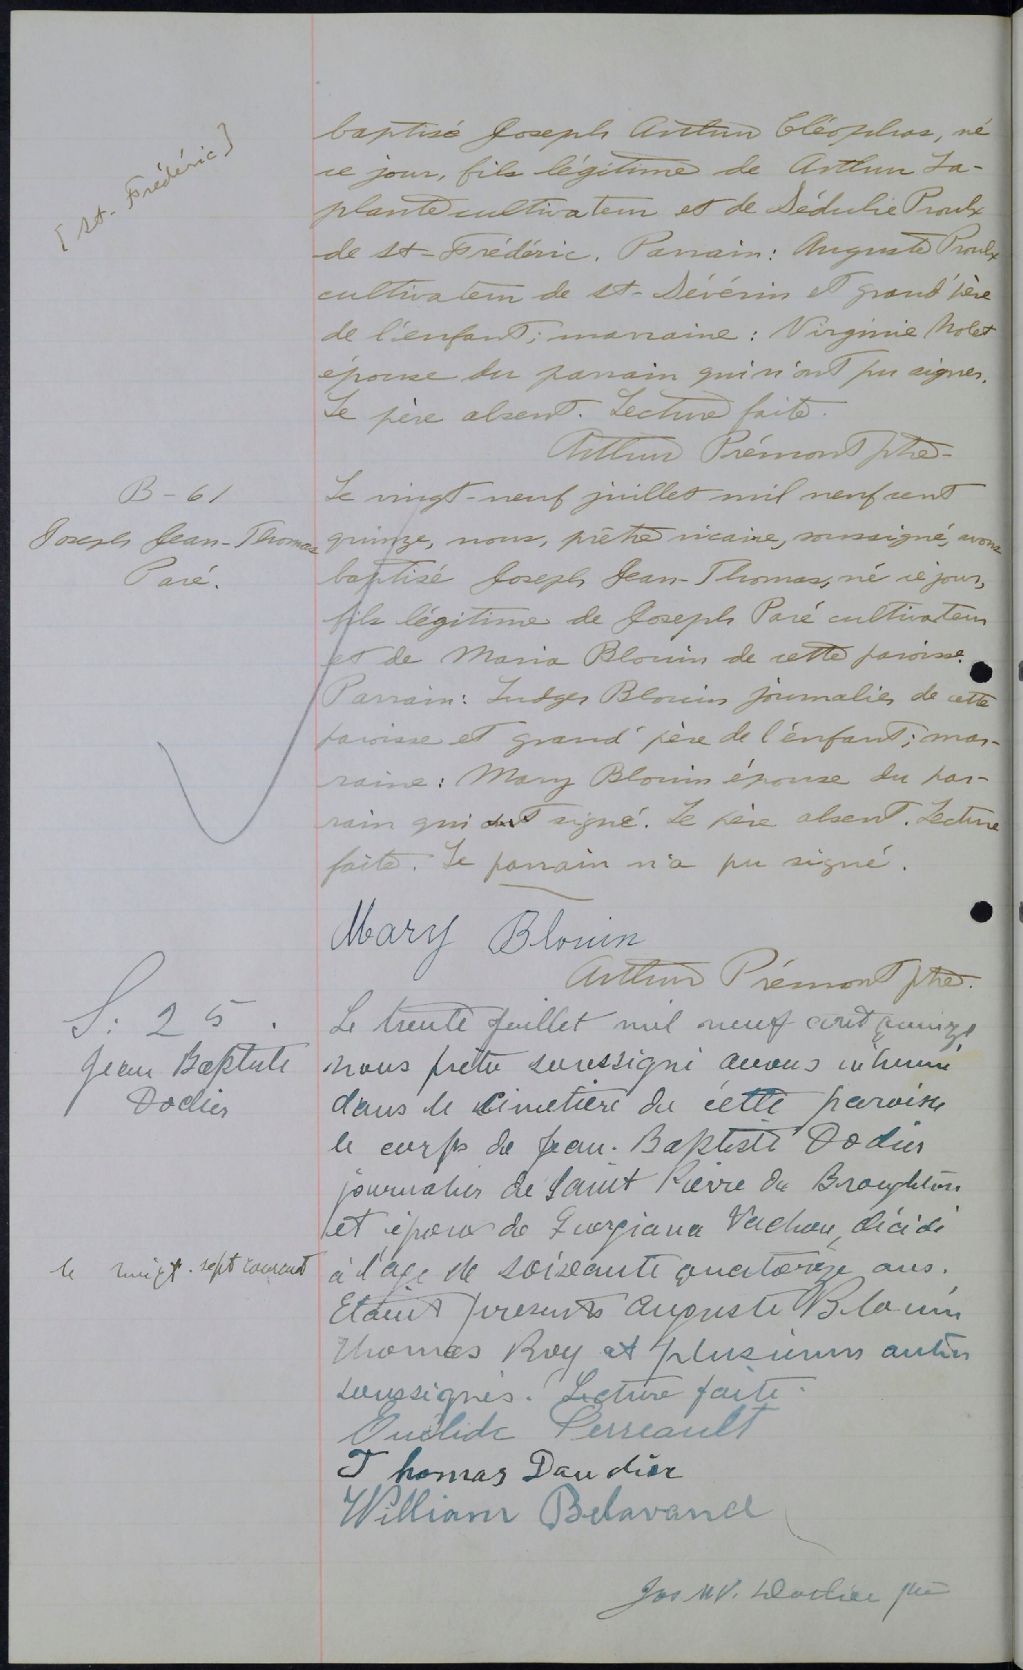 [St-Frédéric]
baptisé Joseph Arthur Cléophas, né
ce jour, fils légitime de Arthur La-
plante cultivateur et de Sédulie Proulx
de St-Frédéric. Parrain: Auguste Proulx
cultivateur de St-Sévérin et grand'père
de l'enfant; marraine: Virginie Nolet
épouse du parrain qui n'ont pu signer.
Le père absent. Lecture faite.
Arthur Prémont ptre-
B-61
Joseph Jean-Thomas
Paré.
Le vingt-neuf juillet mil neuf cent
quinze, nous, prêtre vicaire, soussigné, avons
baptisé Joseph Jean-Thomas, né ce jour,
fils légitime de Joseph Paré cultivateur
et de Maria Blouin de cette paroisse.
Parrain: Ludger Blouin journalier de cette
paroisse et grand'père de l'enfant; mar-
raine: Mary Blouin épouse du par-
rain qui ont signé. Le père absent. Lecture
faite. Le parrain n'a pu signé.
Mary Blouin
Arthur Prémont ptre.
S. 25.
Jean Baptiste
Dodier
Le trente Juillet mil neuf cent quinze
nous prêtre soussigné avons inhumé
dans le cimetière de cette paroisse
le corps de Jean-Baptiste Dodier
journalier de Saint Pierre de Broughton
et époux de Georgiana Vachon, décédé
le vingt-sept courant
à l'age de soixante quatorze ans.
Etaient présents Auguste Blouin
Thomas Roy et plusieurs autres
soussignés. Lecture faite.
Euclide Perreault
Thomas Daudier
William
ptre